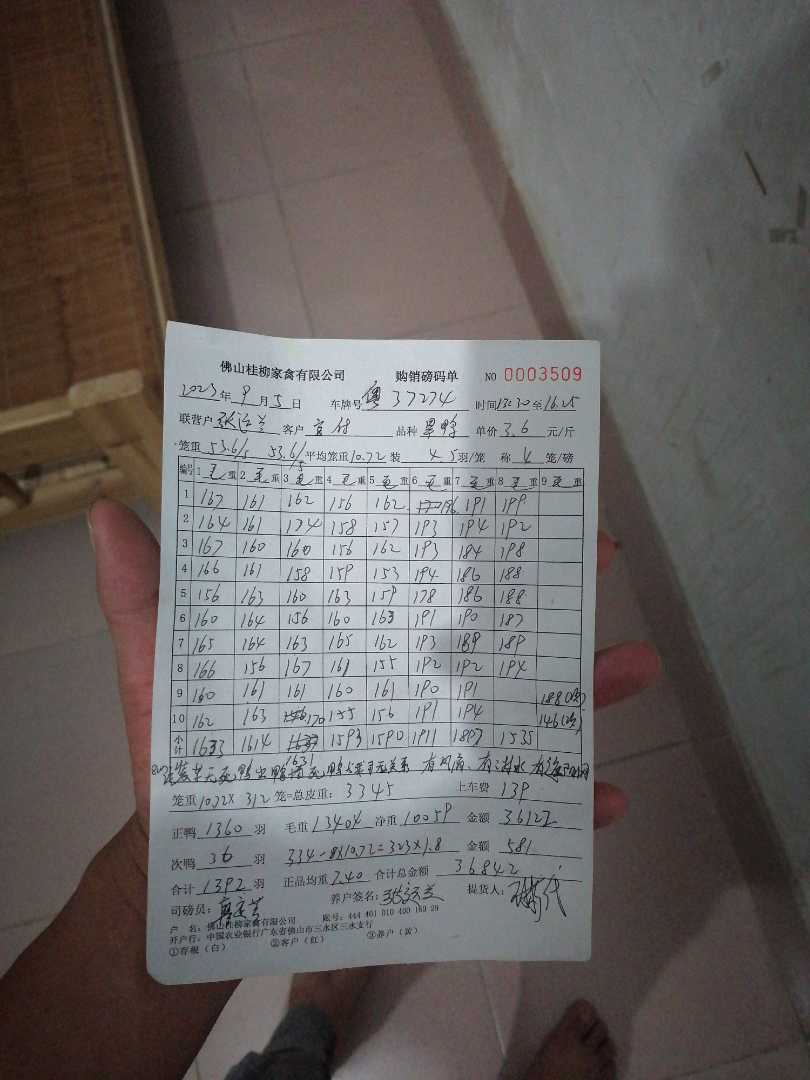 佛山桂柳家禽有限公司 购销磅码单 NO 0003509
2023年 9月 5日 车牌号 粤 37274 时间13:30至16:25
联营户 客户 品种 单价 3.6 元/斤
笼重 53.6/5 53.6/5 平均笼重10.72 装 4 5羽/笼 称 4 笼/磅
编号 1 毛 重 2 毛 重 3 毛 重 4 毛 重 5 毛 重 6 毛 重 7 毛 重 8 毛 重 9 毛 重
1 167 161 162 156 162 196 191 199
2 164 161 174 158 157 193 194 192
3 167 160 160 156 162 193 184 198
4 166 161 158 159 153 194 186 188
5 156 163 160 163 159 178 186 188
6 160 164 156 160 163 191 190 187
7 165 164 163 165 162 193 189 189
8 166 156 167 161 155 192 192 194
9 160 161 161 160 161 190 191 188(次)
10 162 163 170 155 156 191 194 146(次)
小计 1633 1614 1631 1593 1590 1911 1897 1535
笼重10.72× 312 笼=总皮重: 3345 上车费 139
正鸭 1360 羽 毛重 13404 净重 10059 金额
次鸭 36 羽 334-8×10.72=323×1.8 金额 581
合计 1392 羽 正品均重 7.40 合计总金额 36842
司磅员: 养户签名: 提货人:
户 名: 佛山桂柳家禽有限公司 账号: 444 401 010 400 163 29
开户行: 中国农业银行广东省佛山市三水区三水支行
①存根(白) ②客户(红) ③养户(黄)